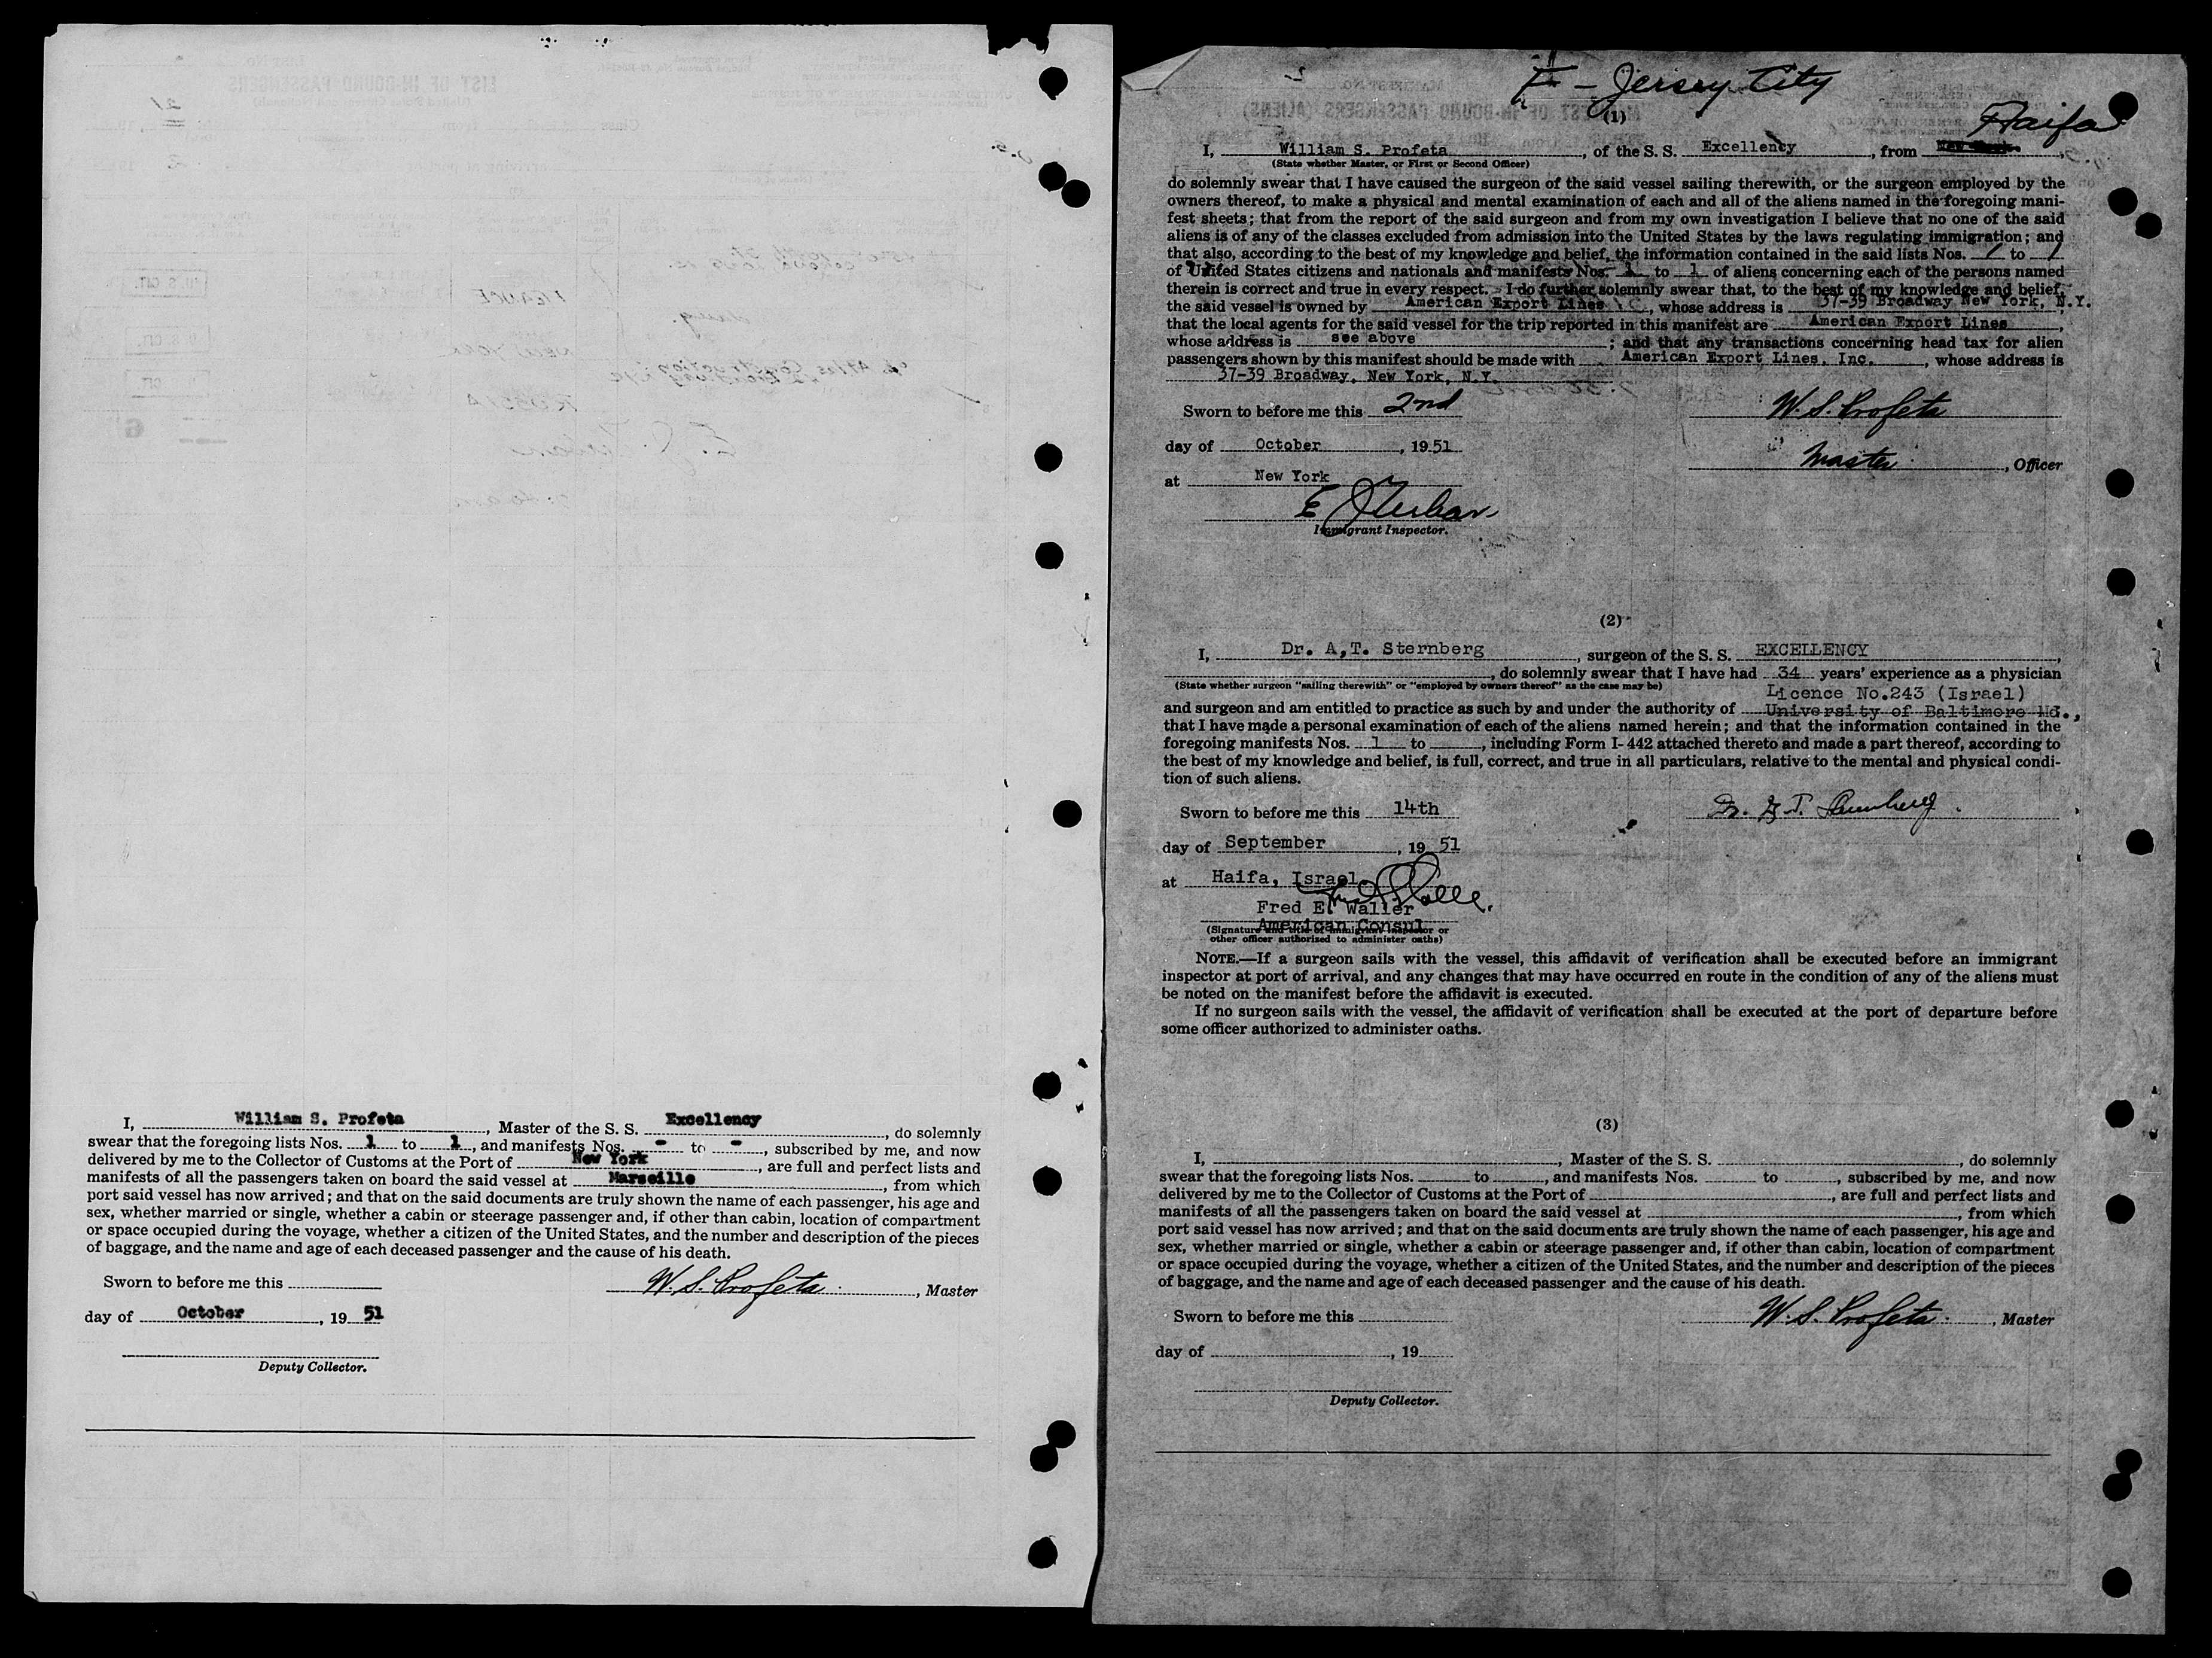 I, William S. Profeta, Master of the S. S. Excellency, do solemnly
swear that the foregoing lists Nos. 1 to 1, and manifests Nos. - to -, subscribed by me, and now
delivered by me to the Collector of Customs at the Port of New York, are full and perfect lists and
manifests of all the passengers taken on board the said vessel at Marseille, from which
port said vessel has now arrived; and that on the said documents are truly shown the name of each passenger, his age and
sex, whether married or single, whether a cabin or steerage passenger and, if other than cabin, location of compartment
or space occupied during the voyage, whether a citizen of the United States, and the number and description of the pieces
of baggage, and the name and age of each deceased passenger and the cause of his death.
Sworn to before me this
W. S. Profeta, Master
day of October, 19 51
Deputy Collector.
- Jersey City
(1)
Haifa
I, William S. Profeta, of the S. S. Excellency, from
(State whether Master, or First or Second Officer)
do solemnly swear that I have caused the surgeon of the said vessel sailing therewith, or the surgeon employed by the
owners thereof, to make a physical and mental examination of each and all of the aliens named in the foregoing mani-
fest sheets; that from the report of the said surgeon and from my own investigation I believe that no one of the said
aliens is of any of the classes excluded from admission into the United States by the laws regulating immigration; and
that also, according to the best of my knowledge and belief, the information contained in the said lists Nos. 1 to 1
of United States citizens and nationals and manifests Nos. 1 to 1 of aliens concerning each of the persons named
therein is correct and true in every respect. I do further solemnly swear that, to the best of my knowledge and belief,
the said vessel is owned by American Export Lines, whose address is 37-39 Broadway New York, N.Y.
that the local agents for the said vessel for the trip reported in this manifest are American Export Lines,
whose address is see above; and that any transactions concerning head tax for alien
passengers shown by this manifest should be made with American Export Lines, Inc., whose address is
37-39 Broadway, New York, N.Y.
Sworn to before me this 2nd
W. S. Profeta
day of October, 19 51
Master, Officer
at New York
Immigrant Inspector.
(2)
I, Dr. A,T. Sternberg, surgeon of the S. S. EXCELLENCY,
, do solemnly swear that I have had 34 years' experience as a physician
(State whether surgeon "sailing therewith" or "employed by owners thereof" as the case may be)
Licence No.243 (Israel)
and surgeon and am entitled to practice as such by and under the authority of University of Baltimore Md.,
that I have made a personal examination of each of the aliens named herein; and that the information contained in the
foregoing manifests Nos. 1 to , including Form I-442 attached thereto and made a part thereof, according to
the best of my knowledge and belief, is full, correct, and true in all particulars, relative to the mental and physical condi-
tion of such aliens.
Sworn to before me this 14th
Dr. A. T. Sternberg
day of September, 19 51
at Haifa, Israel
Fred E. Waller
American Consul
(Signature and title of immigrant inspector or
other officer authorized to administer oaths)
NOTE.—If a surgeon sails with the vessel, this affidavit of verification shall be executed before an immigrant
inspector at port of arrival, and any changes that may have occurred en route in the condition of any of the aliens must
be noted on the manifest before the affidavit is executed.
If no surgeon sails with the vessel, the affidavit of verification shall be executed at the port of departure before
some officer authorized to administer oaths.
(3)
I, , Master of the S. S. , do solemnly
swear that the foregoing lists Nos. to , and manifests Nos. to , subscribed by me, and now
delivered by me to the Collector of Customs at the Port of , are full and perfect lists and
manifests of all the passengers taken on board the said vessel at , from which
port said vessel has now arrived; and that on the said documents are truly shown the name of each passenger, his age and
sex, whether married or single, whether a cabin or steerage passenger and, if other than cabin, location of compartment
or space occupied during the voyage, whether a citizen of the United States, and the number and description of the pieces
of baggage, and the name and age of each deceased passenger and the cause of his death.
Sworn to before me this
W. S. Profeta, Master
day of , 19
Deputy Collector.